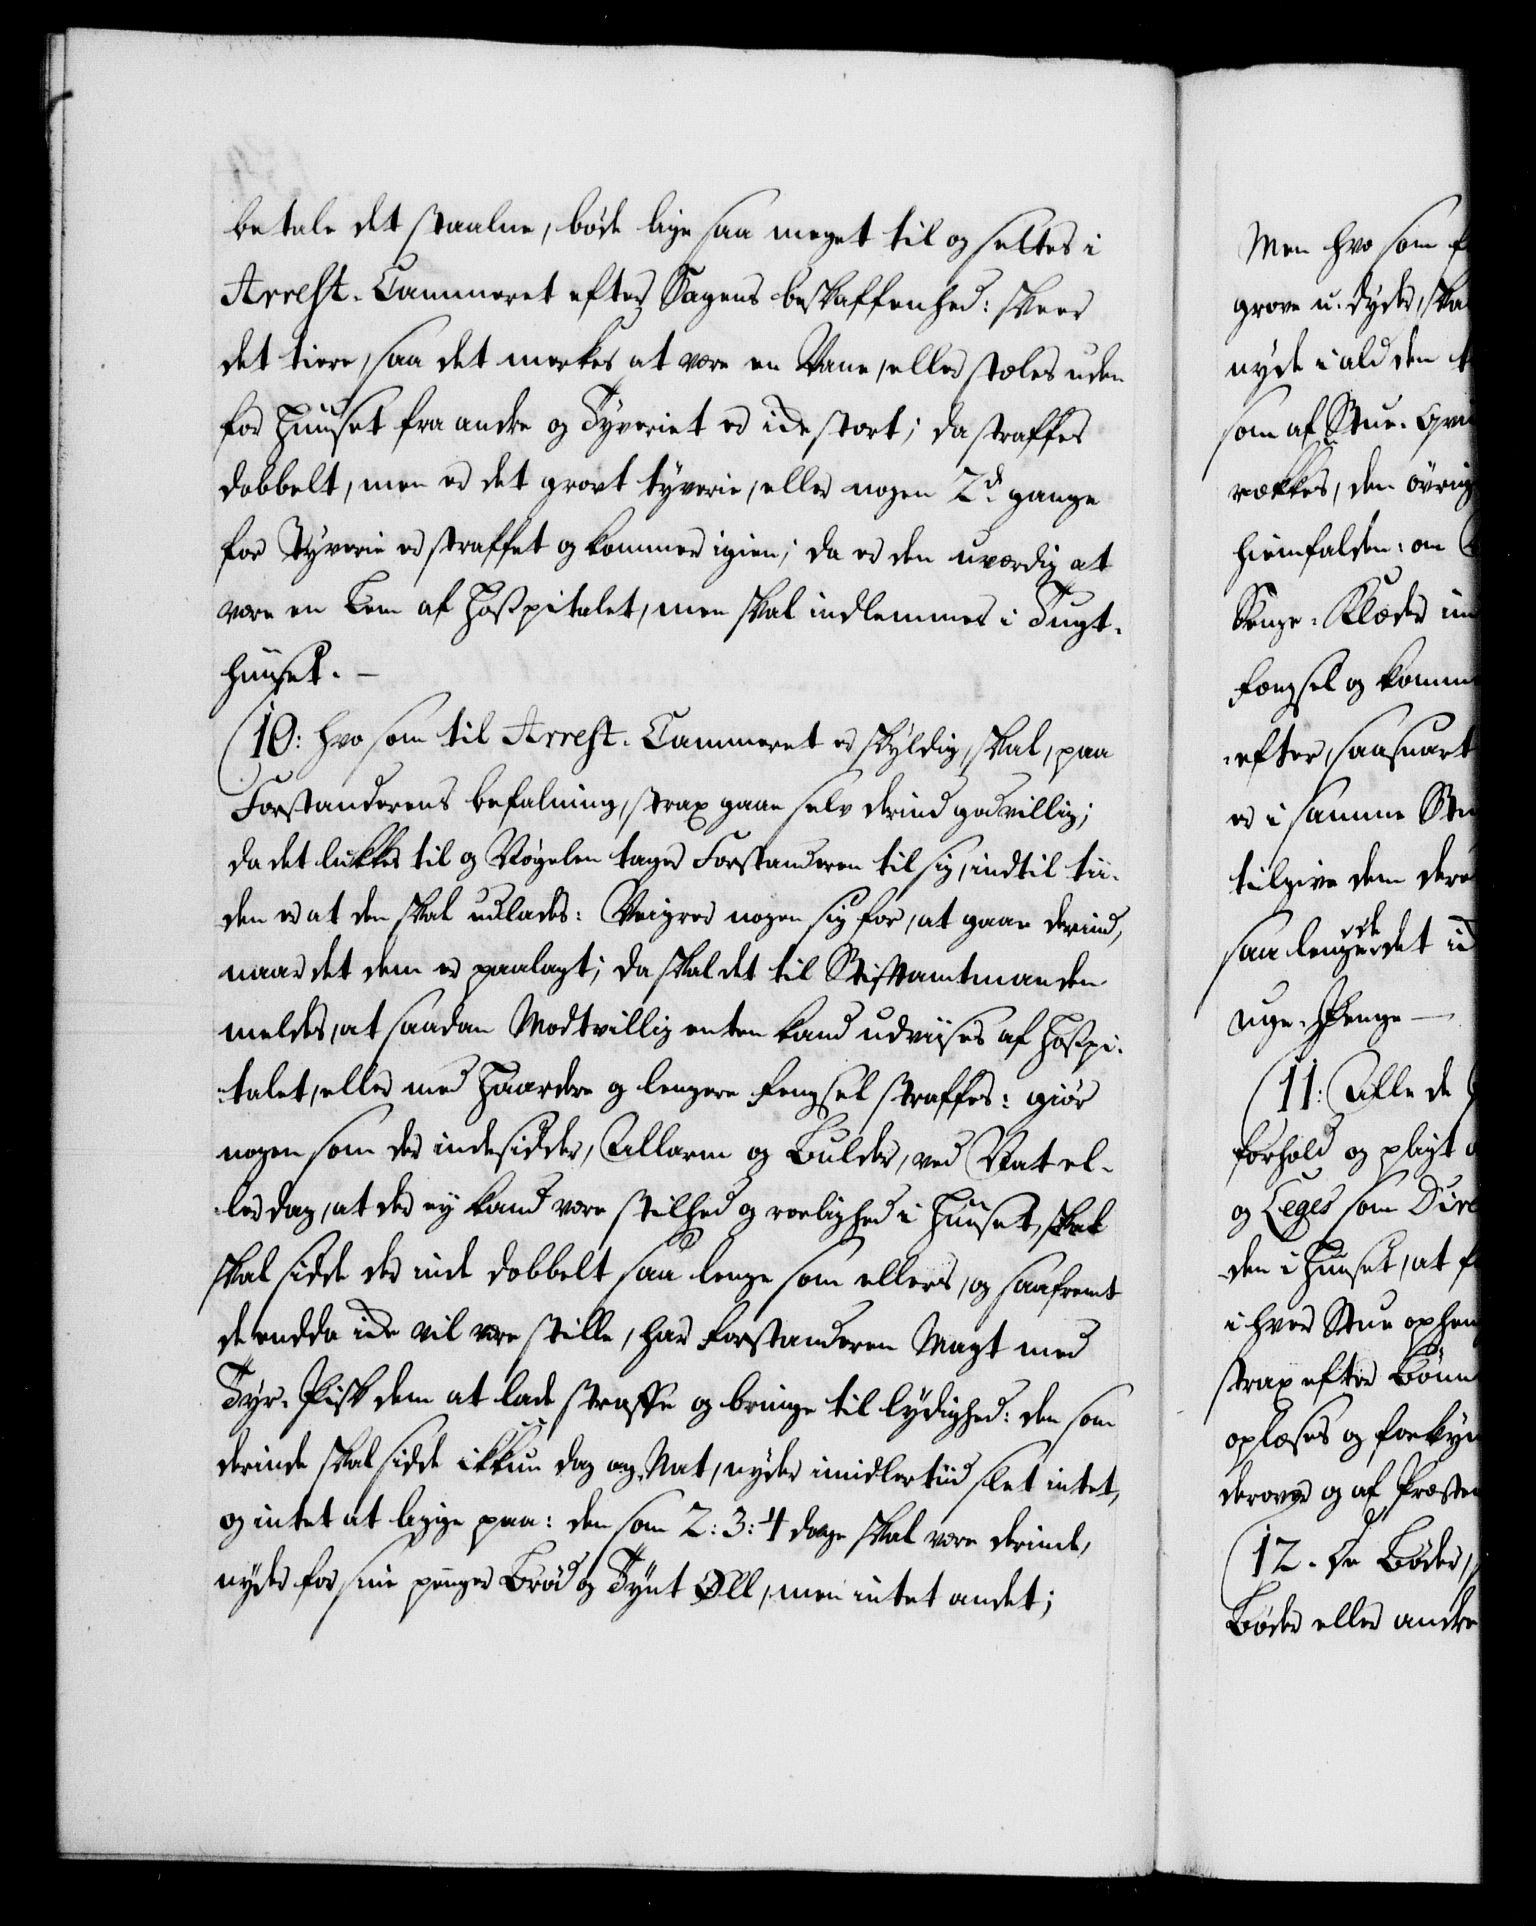 betale det staalne, bøde lige saa meget til og settes i
Arrest-Cammeret efter Sagens beskaffenhed: skeer
det tiere, saa det merkes at være en Vane, eller stæles uden
for Huuset fra andre og Tyveriet er icke stort; da straffes
dobbelt, men er det grovt tyverie, eller nogen 2de gange
for Tyverie er straffet og kommer igien; da er den uværdig at
være en Lem af Hospitalet, men skal indlemmes i Tugt-
huuset. –
(10: hvo som til Arrest-Cammeret er skyldig, skal, paa
Forstanderens befalning, strax gaae selv derind godvillig;
da det lukkes til og Nøgelen tager Forstanderen til sig, indtil tii-
den er at den skal udlades: Veigrer nogen sig for, at gaae derind,
naar det dem er paalagt; da skal det til Stiftamtmanden
meldes, at saadan Modtvillig enten kand udviises af Hospi-
talet, eller med Haardere og lengere fengsel straffes: giør
nogen som der indesidder, Allarm og Bulder, ved Nat el-
ler dag, at der ey kand være stilhed og roelighed i Huuset, skal
skal sidde der inde dobbelt saa lenge som ellers, og saafremt
de endda icke vil være stille, har Forstanderen Magt med
Tyr-Pisk dem at lade straffe og bringe til lydighed: den som
derinde skal sidde ikkun dag og Nat, nyder imidlertiid slet intet,
og intet at ligge paa: den som 2: 3: 4 dage skal være derinde,
nyder for sine penger Brød og Tynt Øll, men intet andet;
Men hvo som f
grove u-dyder, ska
nyde i ald den t
som af Stue-
rækkes, den øvrig
hiemfalden: om
Senge-Klæder in
fængsel og komme
efter, saasnart
er i samme Stu
tilgive dem dere
saa lenge de det ic
uge-Penge —
(11: Alle de
forhold og pligt
og Leges som Dire
den i Huuset, at f
i hver Stue ophen
strax efter Bønn
oplæses og forkyn
derover og af Præsten
(12. De Bøder,
Bøder eller andre